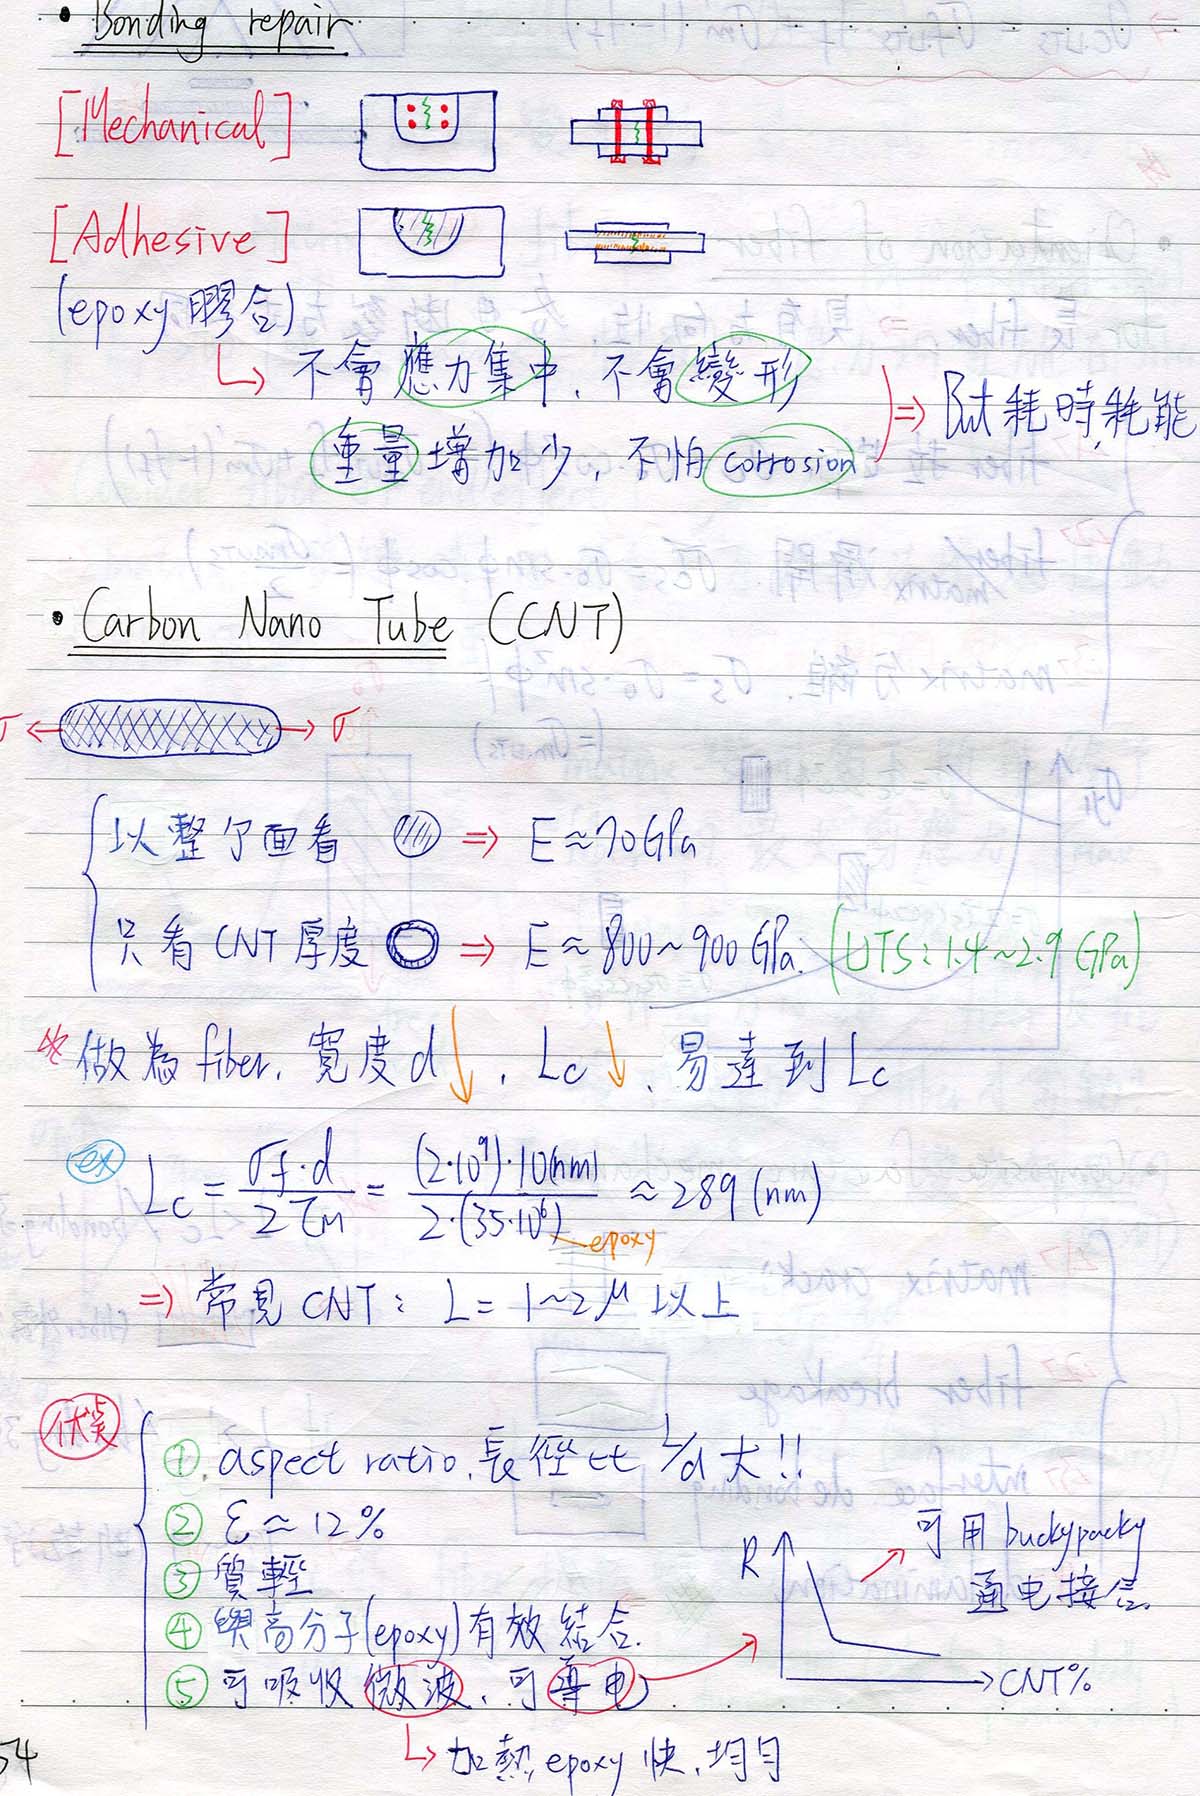 • Bonding repair
[Mechanical]
[Adhesive]
(epoxy 膠合)
不會應力集中, 不會變形
重量增加少, 不怕 corrosion
⇒ But 耗時, 耗能
• Carbon Nano Tube (CNT)
σ ← → σ
以整个面看 ⇒ E ≈ 70 GPa
只看 CNT 厚度 ⇒ E ≈ 800 ~ 900 GPa. (UTS: 1.4 ~ 2.9 GPa)
做為 fiber, 寬度 d ↓, Lc ↓, 易達到 Lc
ex Lc = σf · d / 2τM = (2·10⁹)·10(nm) / 2·(35·10⁶) ≈ 289 (nm)
epoxy
⇒ 常見 CNT: L = 1~2 μ 以上
① aspect ratio, 長徑比 L/d 大!!
② ε ≈ 12%
③ 質輕
④ 與高分子(epoxy)有效結合.
⑤ 可吸收微波, 可導电
加熱 epoxy 快, 均勻
R
CNT%
可用 buckypacky
通电接合.
54